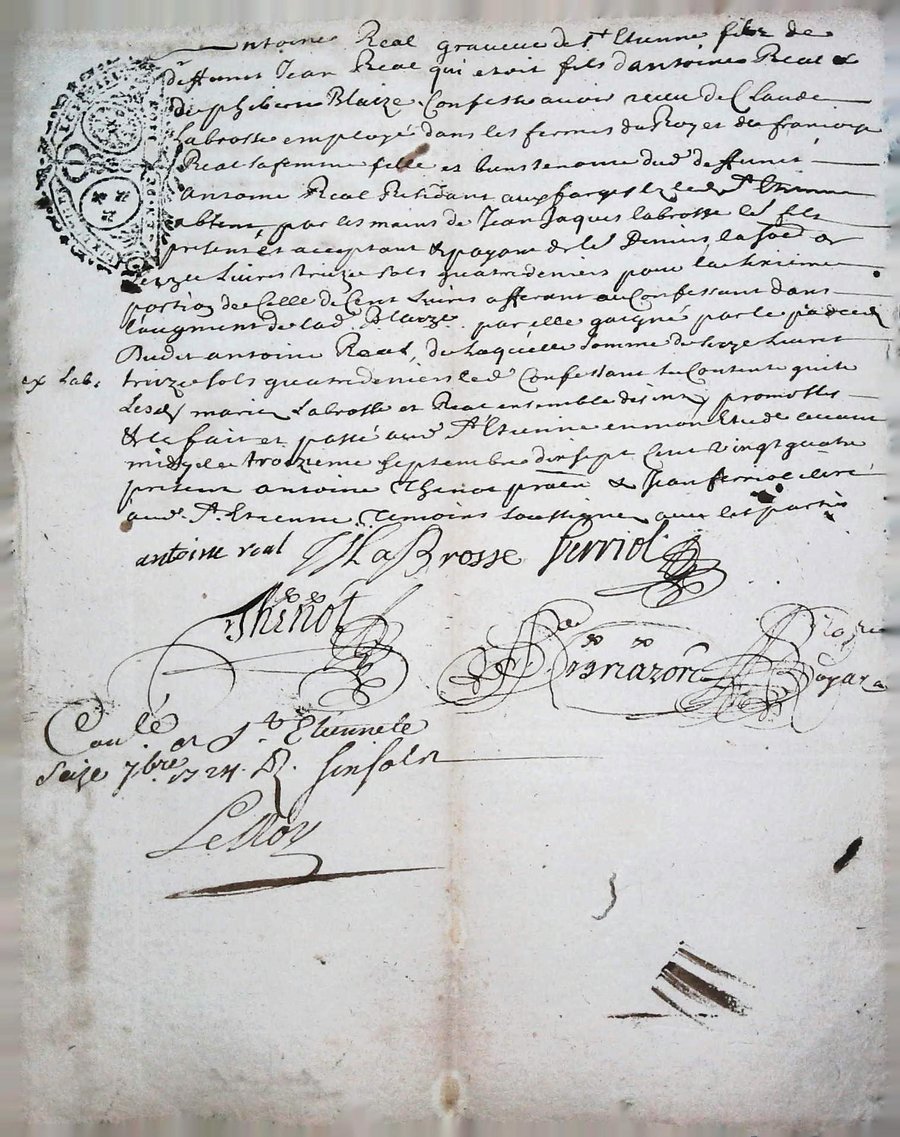 Antoine Real graveur de St Etienne filz de
deffunct Jean Real qui etoit fils dantoine Real &
de phiberte Blaize Confesse avoir receu de Claude
Labrosse employé dans les fermes du Roy et de francoise
Real sa femme fille et bienstenante dud deffunct
Antoine Real Residant aux forges lez led St Etienne
absens, par les mains de Jean Jaques labrosse le fils
present et acceptant & payant de Deniers la so de
seize Livres treize sols quatre deniers pour la sixieme
portion de Celle de Cent Livres afferant au Confessant dans
laugment de lad Blaize par elle gaigné par le
Dudit antoine Real, de laquelle somme de seize Livres
ex Lab. treize sols quatre deniers led Confessant se Contente quite
Lesd mariez Labrosse et Real ensemble promesses
& le fait et passé aud St Etienne en mon Etude avant
midy le troizieme septembre dix sept Cent vingt quatre
present antoine Thinot & Jean ferriol clerc
aud St Etienne Temoins soussignez avec les parties
antoine real JJ LaBrosse ferriol
Thinot
Conlé a St Etienne le
seize 7bre 1724. R. six sols
LeRoy